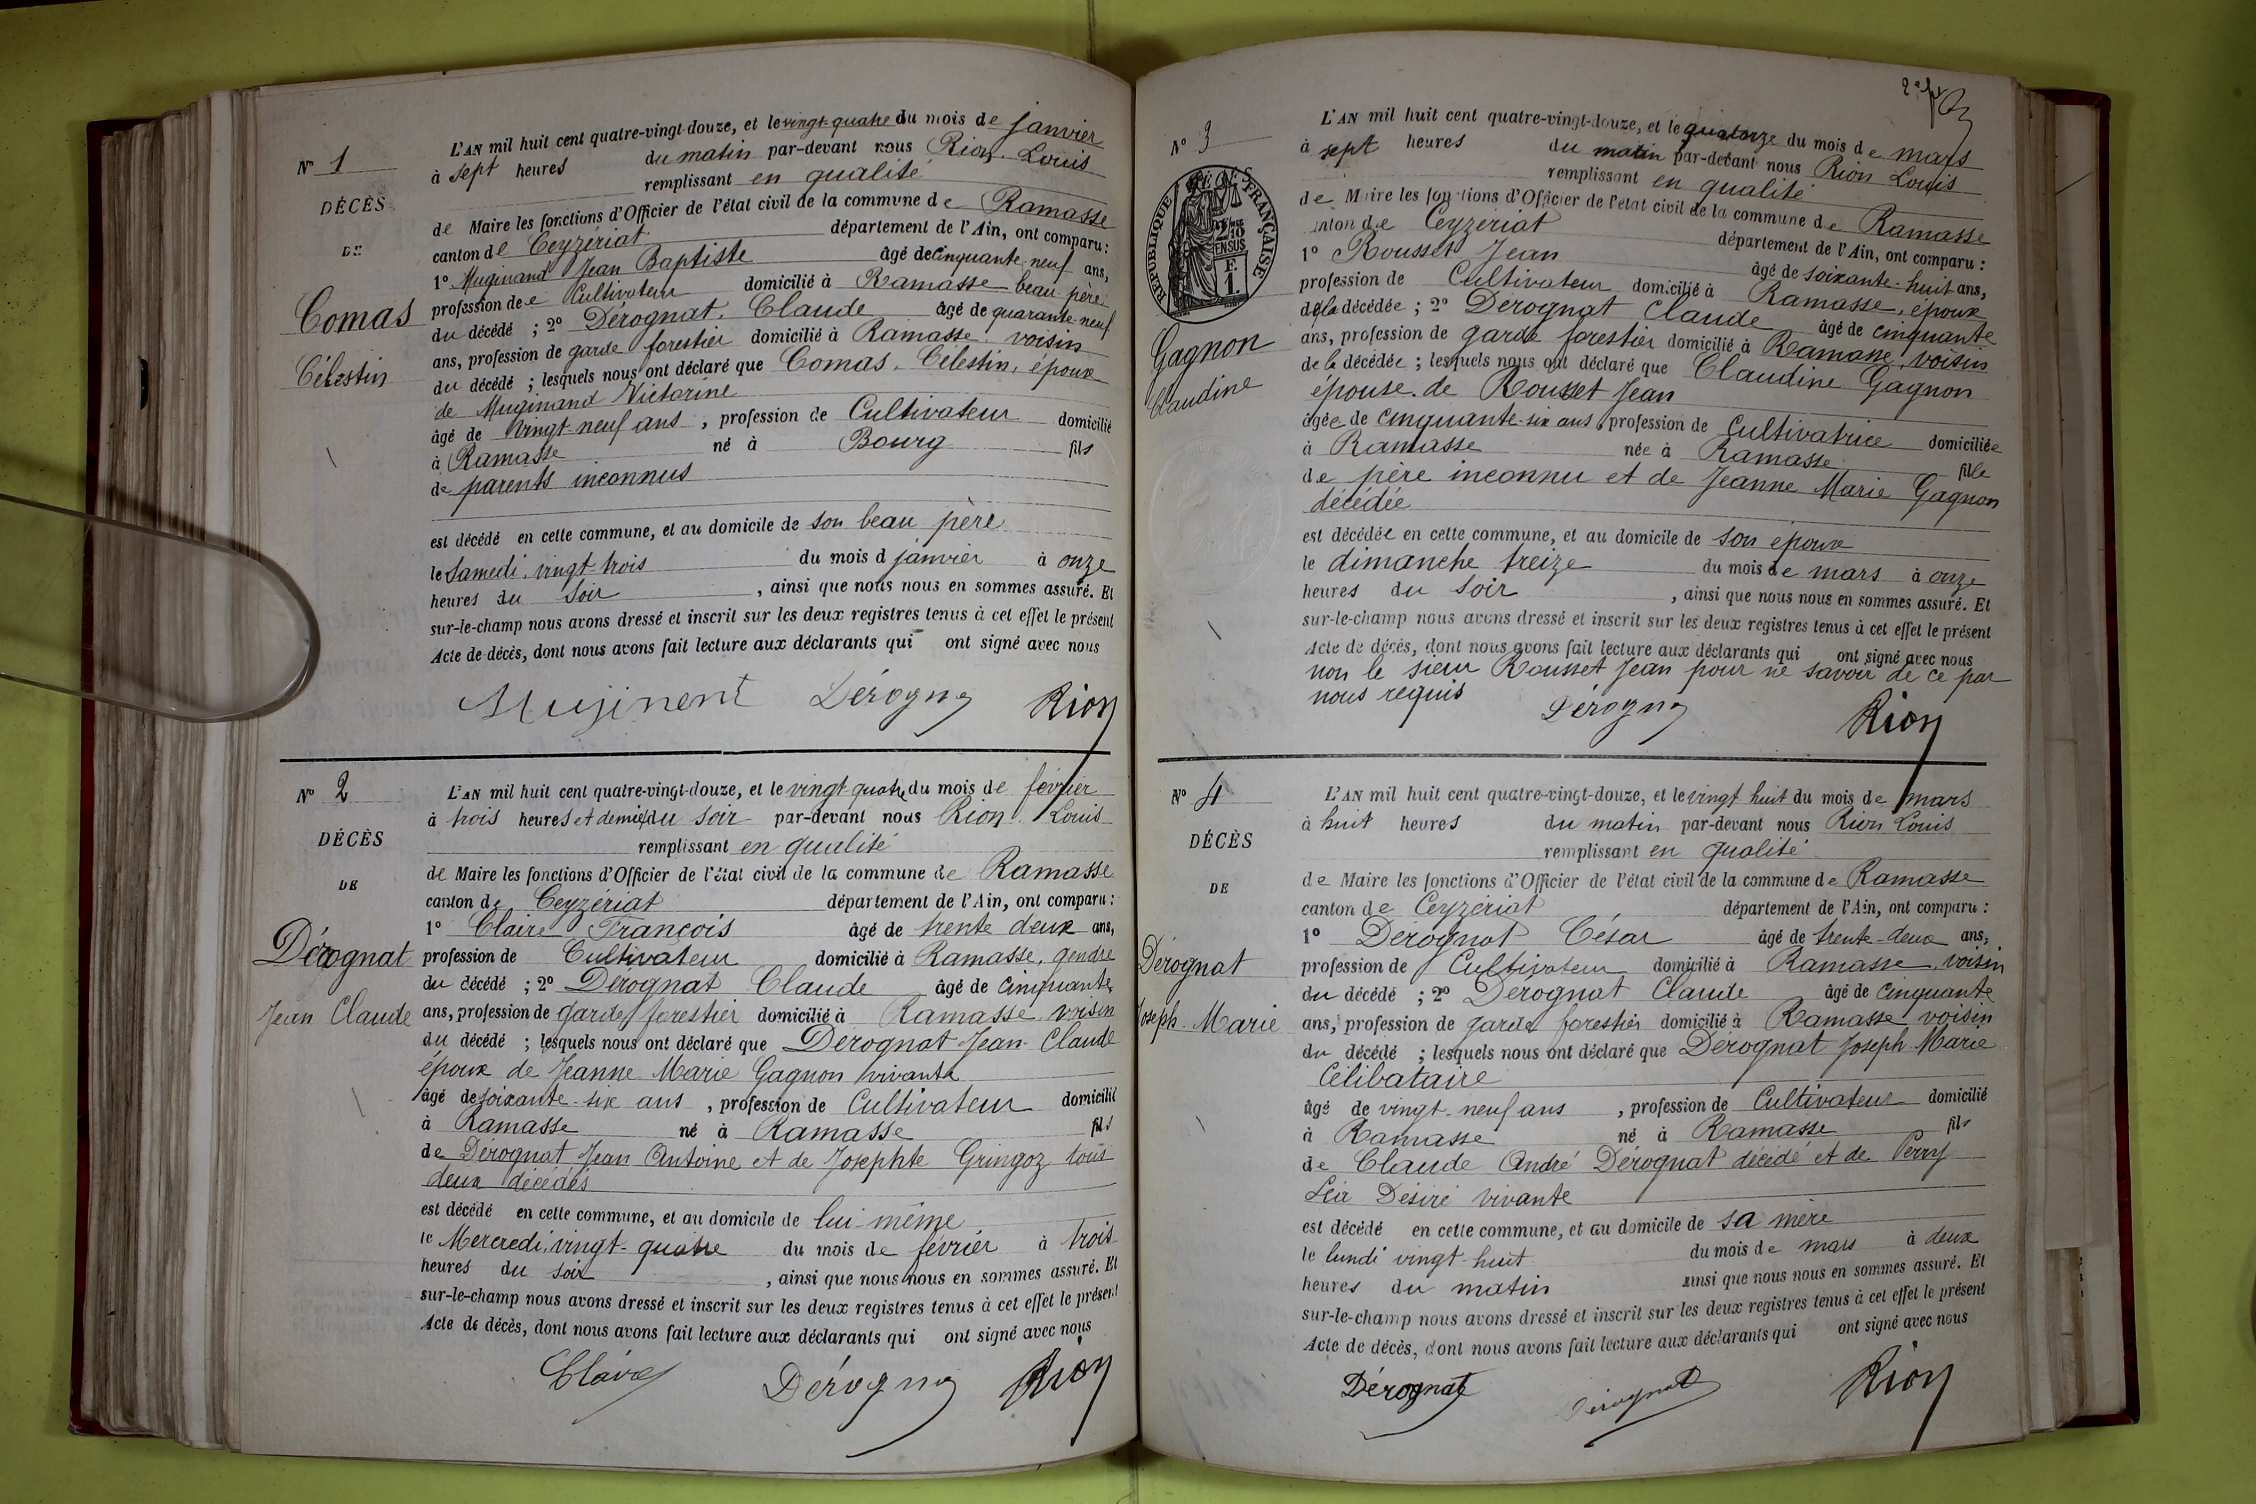 N° 1
DÉCÈS
DE
Comas
Célestin
L'AN mil huit cent quatre-vingt-douze, et le vingt-quatre du mois de janvier
à sept heures du matin par-devant nous Rion Louis
remplissant en qualité
de Maire les fonctions d'Officier de l'état civil de la commune de Ramasse
canton de Ceyzériat département de l'Ain, ont comparu :
1° Muginand Jean Baptiste âgé de cinquante neuf ans,
profession de Cultivateur domicilié à Ramasse beau père
du décédé ; 2° Dérognat Claude âgé de quarante-neuf
ans, profession de garde forestier domicilié à Ramasse voisin
du décédé ; lesquels nous ont déclaré que Comas Célestin, époux
de Muginand Victorine
âgé de vingt-neuf ans, profession de Cultivateur domicilié
à Ramasse né à Bourg fils
de parents inconnus
est décédé en cette commune, et au domicile de son beau père
le Samedi, vingt-trois du mois d janvier à onze
heures du soir, ainsi que nous nous en sommes assuré. Et
sur-le-champ nous avons dressé et inscrit sur les deux registres tenus à cet effet le présent
Acte de décès, dont nous avons fait lecture aux déclarants qui ont signé avec nous
Muginent Dérogna Rion
N° 2
DÉCÈS
DE
Dérognat
Jean Claude
L'AN mil huit cent quatre-vingt-douze, et le vingt-quatre du mois de février
à trois heures et demie du soir par-devant nous Rion Louis
remplissant en qualité
de Maire les fonctions d'Officier de l'état civil de la commune de Ramasse
canton de Ceyzériat département de l'Ain, ont comparu :
1° Claire François âgé de trente deux ans,
profession de Cultivateur domicilié à Ramasse, gendre
du décédé ; 2° Dérognat Claude âgé de cinquante
ans, profession de garde forestier domicilié à Ramasse voisin
du décédé ; lesquels nous ont déclaré que Dérognat Jean Claude
époux de Jeanne Marie Gagnon vivante
âgé de soixante-six ans, profession de Cultivateur domicilié
à Ramasse né à Ramasse fils
de Dérognat Jean Antoine et de Josephte Gringoz tous
deux décédés
est décédé en cette commune, et au domicile de lui même
le Mercredi, vingt-quatre du mois de février à trois
heures du soir, ainsi que nous nous en sommes assuré. Et
sur-le-champ nous avons dressé et inscrit sur les deux registres tenus à cet effet le présent
Acte de décès, dont nous avons fait lecture aux déclarants qui ont signé avec nous
Claire Dérogna Rion
N° 3
RÉPUBLIQUE FRANÇAISE
Gagnon
Claudine
L'AN mil huit cent quatre-vingt-douze, et le quatorze du mois de mars
à sept heures du matin par-devant nous Rion Louis
remplissant en qualité
de Maire les fonctions d'Officier de l'état civil de la commune de Ramasse
canton de Ceyzériat département de l'Ain, ont comparu :
1° Rousset Jean âgé de soixante-huit ans,
profession de Cultivateur domicilié à Ramasse, époux
de la décédée ; 2° Dérognat Claude âgé de cinquante
ans, profession de garde forestier domicilié à Ramasse, voisin
de la décédée ; lesquels nous ont déclaré que Claudine Gagnon
épouse de Rousset Jean
âgée de cinquante-six ans, profession de Cultivatrice domiciliée
à Ramasse née à Ramasse fille
de père inconnu et de Jeanne Marie Gagnon
décédée
est décédée en cette commune, et au domicile de son époux
le dimanche treize du mois de mars à onze
heures du soir, ainsi que nous nous en sommes assuré. Et
sur-le-champ nous avons dressé et inscrit sur les deux registres tenus à cet effet le présent
Acte de décès, dont nous avons fait lecture aux déclarants qui ont signé avec nous
non le sieur Rousset Jean pour ne savoir de ce par
nous requis
Dérogna Rion
N° 4
DÉCÈS
DE
Dérognat
Joseph-Marie
L'AN mil huit cent quatre-vingt-douze, et le vingt huit du mois de mars
à huit heures du matin par-devant nous Rion Louis
remplissant en qualité
de Maire les fonctions d'Officier de l'état civil de la commune de Ramasse
canton de Ceyzériat département de l'Ain, ont comparu :
1° Dérognat César âgé de trente-deux ans,
profession de Cultivateur domicilié à Ramasse, voisin
du décédé ; 2° Dérognat Claude âgé de cinquante
ans, profession de garde forestier domicilié à Ramasse voisin
du décédé ; lesquels nous ont déclaré que Dérognat Joseph Marie
Célibataire
âgé de vingt-neuf ans, profession de Cultivateur domicilié
à Ramasse né à Ramasse fils
de Claude André Dérognat décédé et de Perry
Désiré vivante
est décédé en cette commune, et au domicile de sa mère
le lundi vingt-huit du mois de mars à deux
heures du matin ainsi que nous nous en sommes assuré. Et
sur-le-champ nous avons dressé et inscrit sur les deux registres tenus à cet effet le présent
Acte de décès, dont nous avons fait lecture aux déclarants qui ont signé avec nous
Dérognat Dérognat Rion